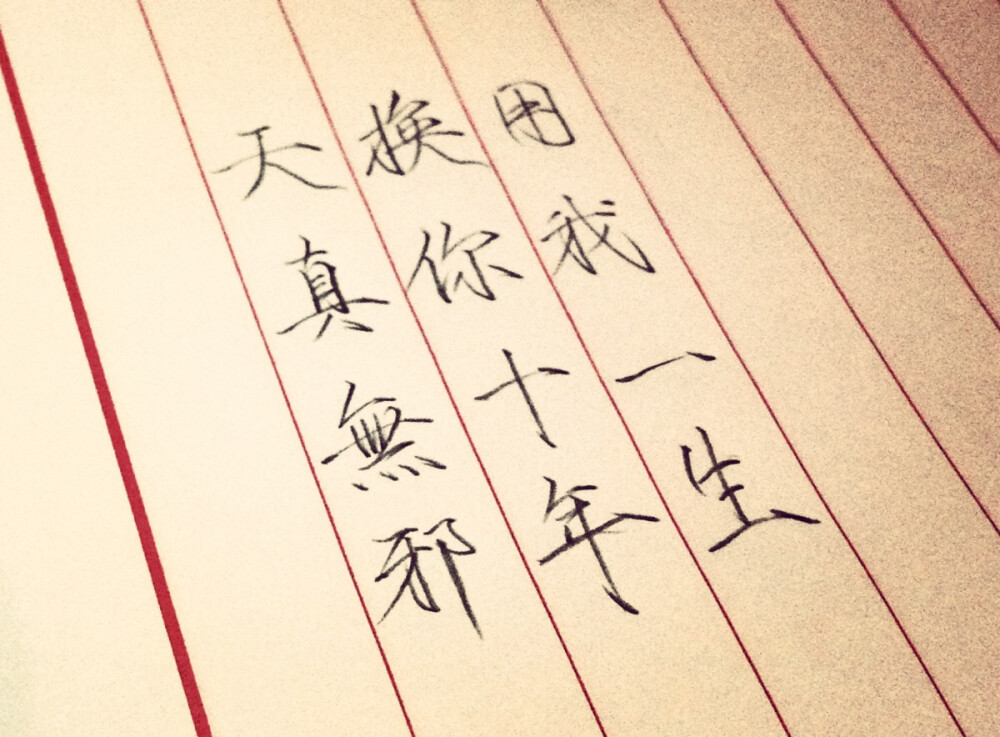 用我一生
换你十年
天真無邪